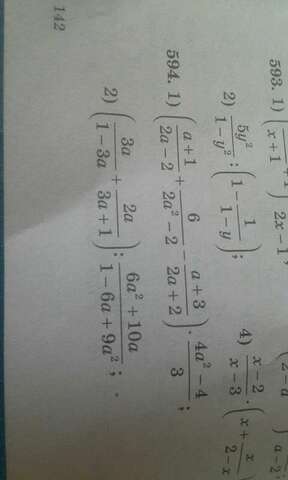 593. 1)
x+1 2x-1,
2) 5y²/(1-y²) : (1 - 1/(1-y)); 4) (x-2)/(x-3) · (x + x/(2-x)
594. 1) ((a+1)/(2a-2) + 6/(2a²-2) - (a+3)/(2a+2)) · (4a²-4)/3;
2) (3a/(1-3a) + 2a/(3a+1)) : (6a²+10a)/(1-6a+9a²);
142